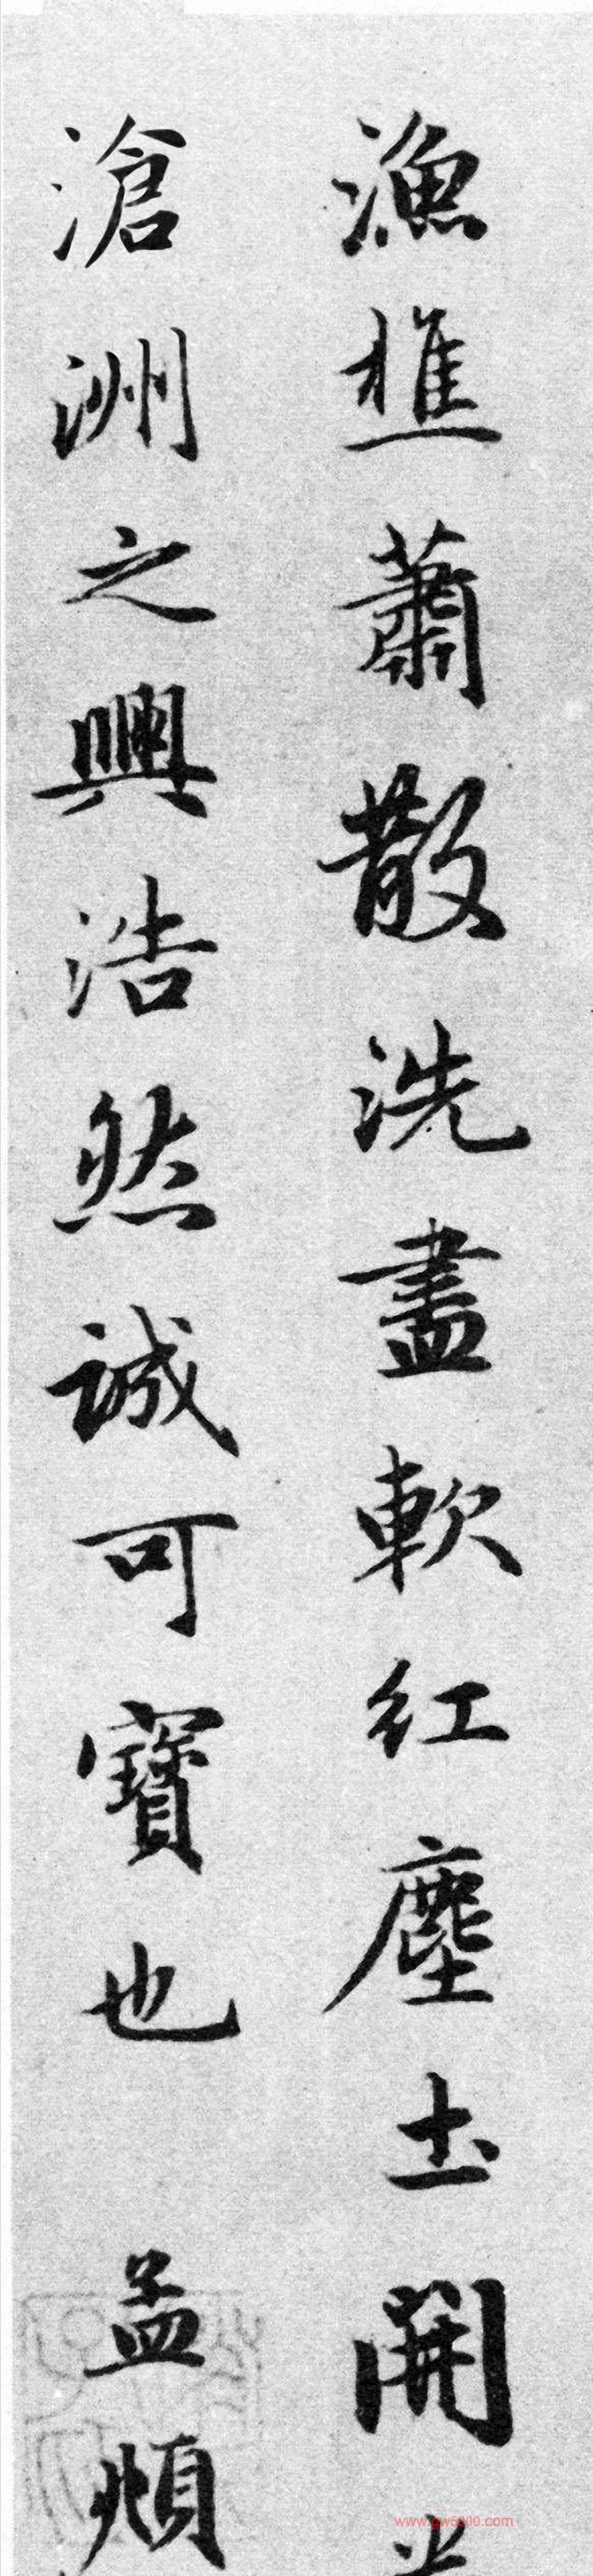 漁樵蕭散洗盡軟紅塵土開
滄洲之興浩然誠可寶也 孟頫
www.gw5000.com